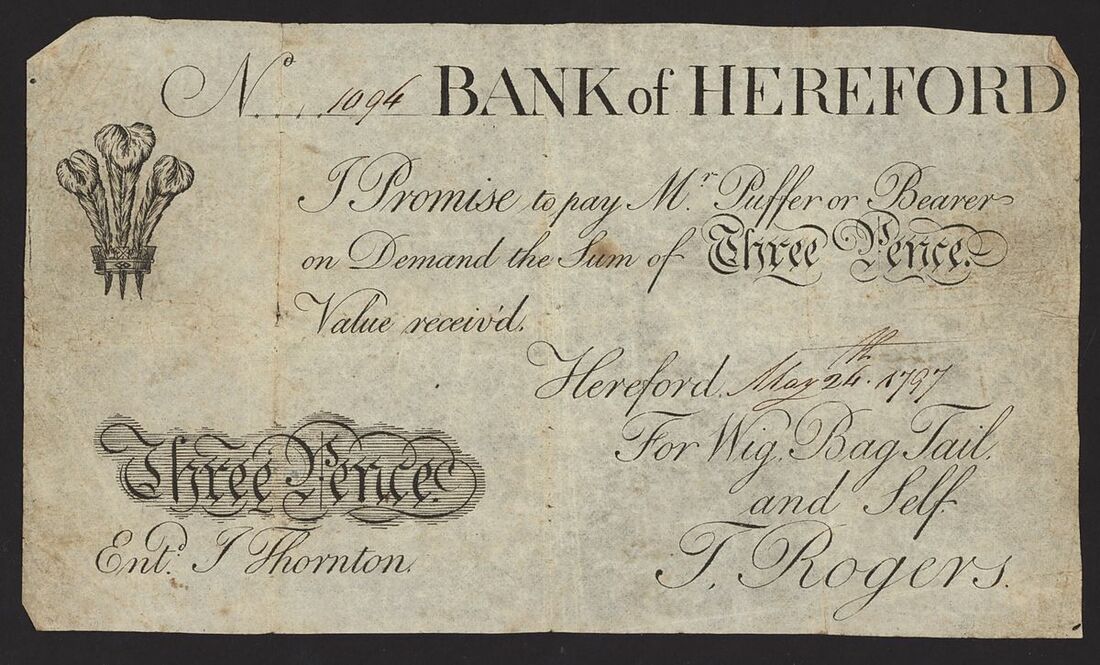 No....1094 BANK of HEREFORD
I Promise to pay Mr. Puffer or Bearer
on Demand the Sum of Three Pence.
Value receiv'd.
Hereford. May 24th. 1797
For Wig, Bag Tail.
and Self
Three Pence.
Entd. J Thornton.
T, Rogers.